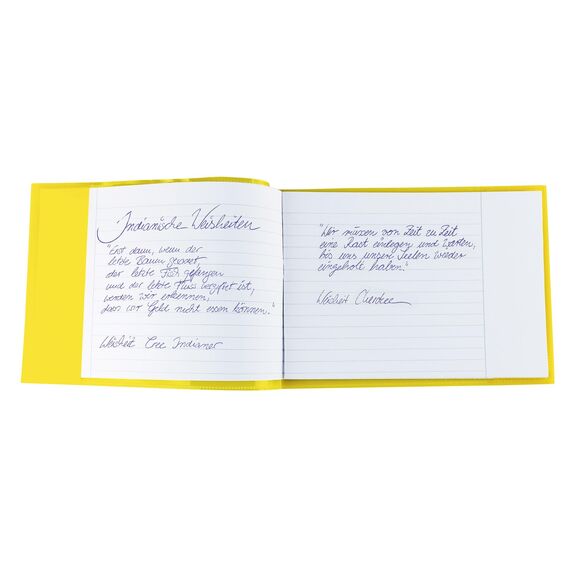 Indianische Weisheiten
"Erst dann, wenn der
letzte Baum gerodet,
der letzte Fisch gefangen
und der letzte Fluss vergiftet ist,
werden wir erkennen,
dass wir Geld nicht essen können."
Weisheit Cree Indianer
"Wir müssen von Zeit zu Zeit
eine Rast einlegen und warten,
bis uns unsere Seelen wieder
eingeholt haben."
Weisheit Cherokee